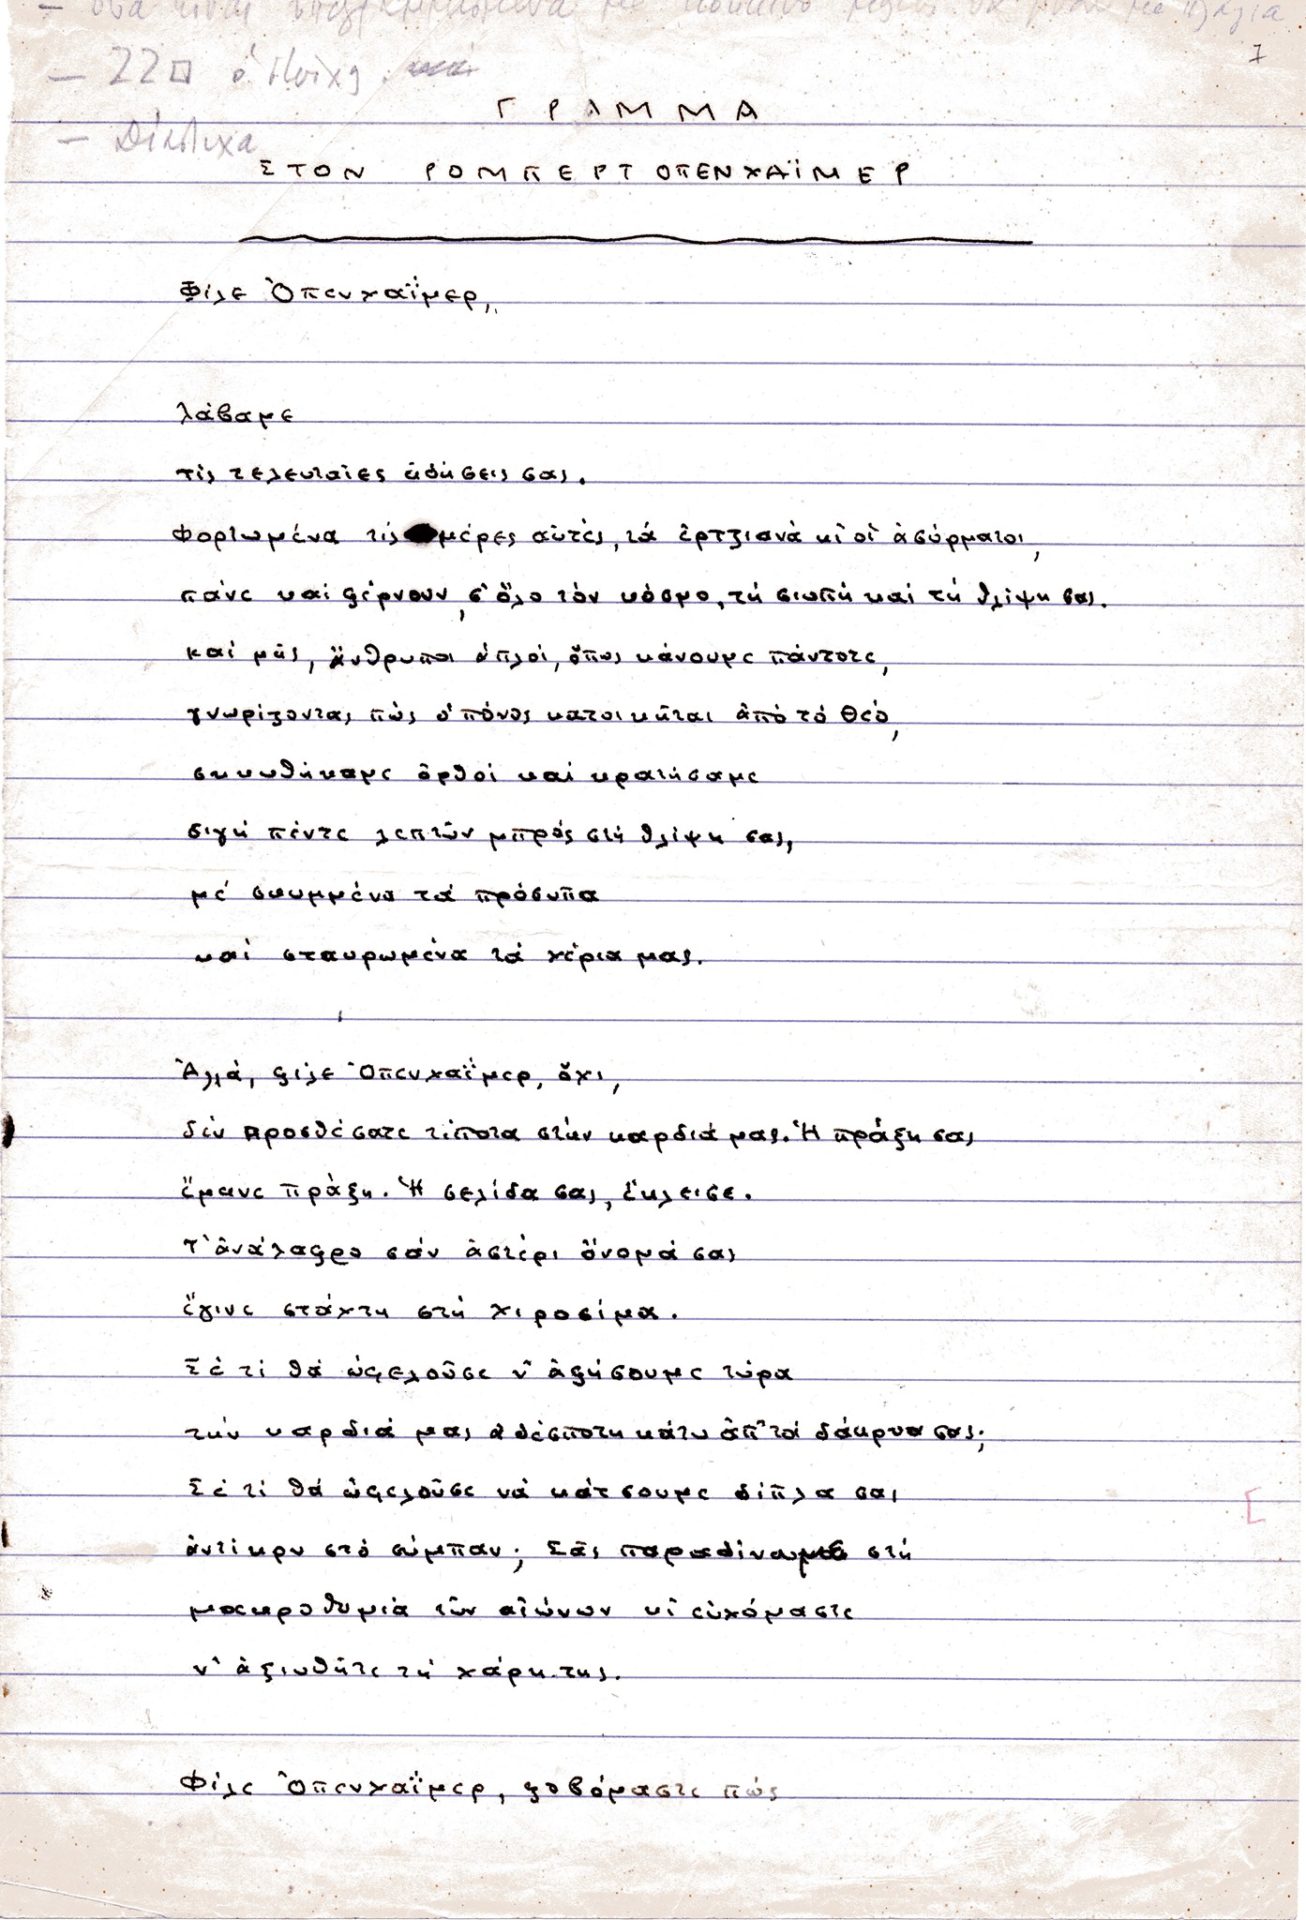 7
— 22□ ὁ στίχος.
— Δίστιχα
ΓΡΑΜΜΑ
ΣΤΟΝ ΡΟΜΠΕΡΤ ΟΠΕΝΧΑΪΜΕΡ
Φίλε Ὀπενχαΐμερ,
λάβαμε
τίς τελευταῖες εἰδήσεις σας.
Φορτωμένα τίς μέρες αὐτές, τά ἑρτζιανά κι οἱ ἀσύρματοι,
πᾶνε καί φέρνουν, σ' ὅλο τόν κόσμο, τή σιωπή καί τή θλίψη σας.
Καί μεῖς, ἄνθρωποι ἁπλοί, ὅπως κάνουμε πάντοτε,
γνωρίζοντας πώς ὁ πόνος κατοικῆται ἀπό τό Θεό,
σηκωθήκαμε ὀρθοί καί κρατήσαμε
σιγή πέντε λεπτῶν μπρός στή θλίψη σας,
μέ σκυμμένα τά πρόσωπα
καί σταυρωμένα τά χέρια μας.
Ἀλλά, φίλε Ὀπενχαΐμερ, ὄχι,
δέν προσθέσατε τίποτα στήν καρδιά μας. Ἡ πράξη σας
ἔμεινε πράξη. Ἡ σελίδα σας, ἔκλεισε.
Τ' ἀνάλαφρο σάν ἀστέρι ὄνομά σας
ἔγινε στάχτη στή Χιροσίμα.
Σέ τί θά ὠφελοῦσε ν' ἀφήσουμε τώρα
τήν καρδιά μας ἀδέσποτη κάτω ἀπ' τά δάκρυα σας;
Σέ τί θά ὠφελοῦσε νά κάτσουμε δίπλα σας
ἀντίκρυ στό σύμπαν; Σᾶς παραδίνουμε στή
μακροθυμία τῶν αἰώνων κι εὐχόμαστε
ν' ἀξιωθῆτε τή χάρη της.
Φίλε Ὀπενχαΐμερ, φοβόμαστε πώς